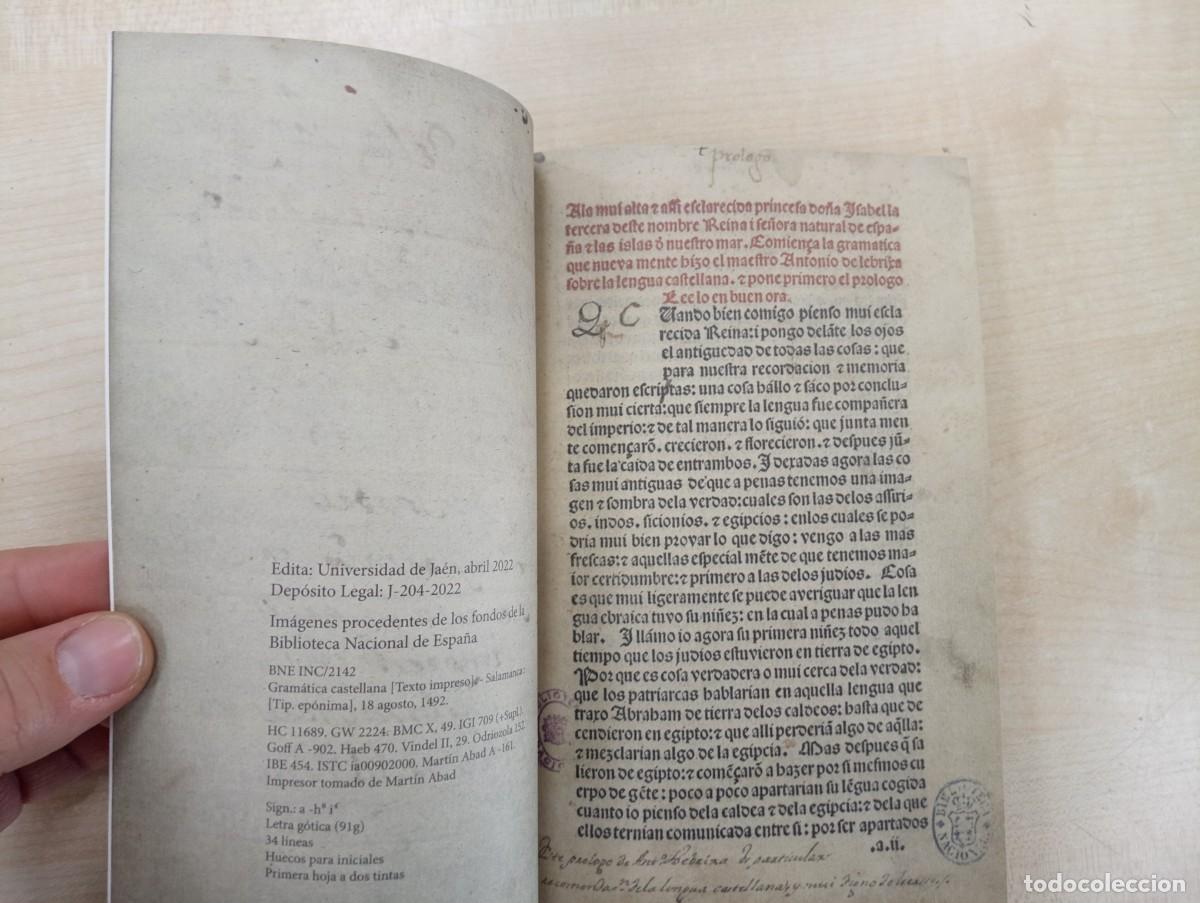 Edita: Universidad de Jaén, abril 2022
Depósito Legal: J-204-2022
Imágenes procedentes de los fondos de la
Biblioteca Nacional de España
BNE INC/2142
Gramática castellana [Texto impreso].- Salamanca:
[Tip. epónima], 18 agosto, 1492.
HC 11689. GW 2224. BMC X, 49. IGI 709 (+Supl).
Goff A -902. Haeb 470. Vindel II, 29. Odriozola 152.
IBE 454. ISTC ia00902000. Martín Abad A -161.
Impresor tomado de Martín Abad
Sign.: a -h⁸ i⁴
Letra gótica (91g)
34 líneas
Huecos para iniciales
Primera hoja a dos tintas
prologo
Ala mui alta ⁊ assi esclarecida princesa doña Isabel la
tercera deste nombre Reina i señora natural de espa⸗
ña ⁊ las islas ď nuestro mar. Comiença la gramatica
que nueva mente hizo el maestro Antonio de lebrixa
sobre la lengua castellana. ⁊ pone primero el prologo
Lee lo en buen ora.
Q C Uando bien comigo pienso mui escla
recida Reina: i pongo delãte los ojos
el antiguedad de todas las cosas: que
para nuestra recordacion ⁊ memoria
quedaron escriptas: una cosa hállo ⁊ sáco por conclu⸗
sion mui cierta: que siempre la lengua fue compañera
del imperio: ⁊ de tal manera lo siguió: que junta men
te començarõ. crecieron. ⁊ florecieron. ⁊ despues jũ⸗
ta fue la caida de entrambos. I dexadas agora las co
sas mui antiguas de que a penas tenemos una ima⸗
gen ⁊ sombra dela verdad: cuales son las delos assiri⸗
os. indos. sicionios. ⁊ egipcios: enlos cuales se po⸗
dria mui bien provar lo que digo: vengo a las mas
frescas: ⁊ aquellas especial mẽte de que tenemos ma⸗
ior certidumbre: ⁊ primero a las delos judios. Cosa
es que mui ligeramente se puede averiguar que la len
gua ebraica tuvo su niñez: en la cual a penas pudo ha
blar. I llámo io agora su primera niñez todo aquel
tiempo que los judios estuvieron en tierra de egipto.
Por que es cosa verdadera o mui cerca dela verdad:
que los patriarcas hablarian en aquella lengua que
traxo Abraham de tierra delos caldeos: hasta que de
cendieron en egipto: ⁊ que alli perderiã algo de aq̃lla:
⁊ mezclarian algo de la egipcia. Mas despues q̃ sa
lieron de egipto: ⁊ comẽçarõ a hazer por si mesmos cu
erpo de gẽte: poco a poco apartarian su lẽgua cogida
cuanto io pienso dela caldea ⁊ dela egipcia: ⁊ dela que
ellos ternian comunicada entre si: por ser apartados
.a.ii.
Este prologo de Antº Nebrixa de particular
de la lengua castellana, y mui digno de
todocoleccion